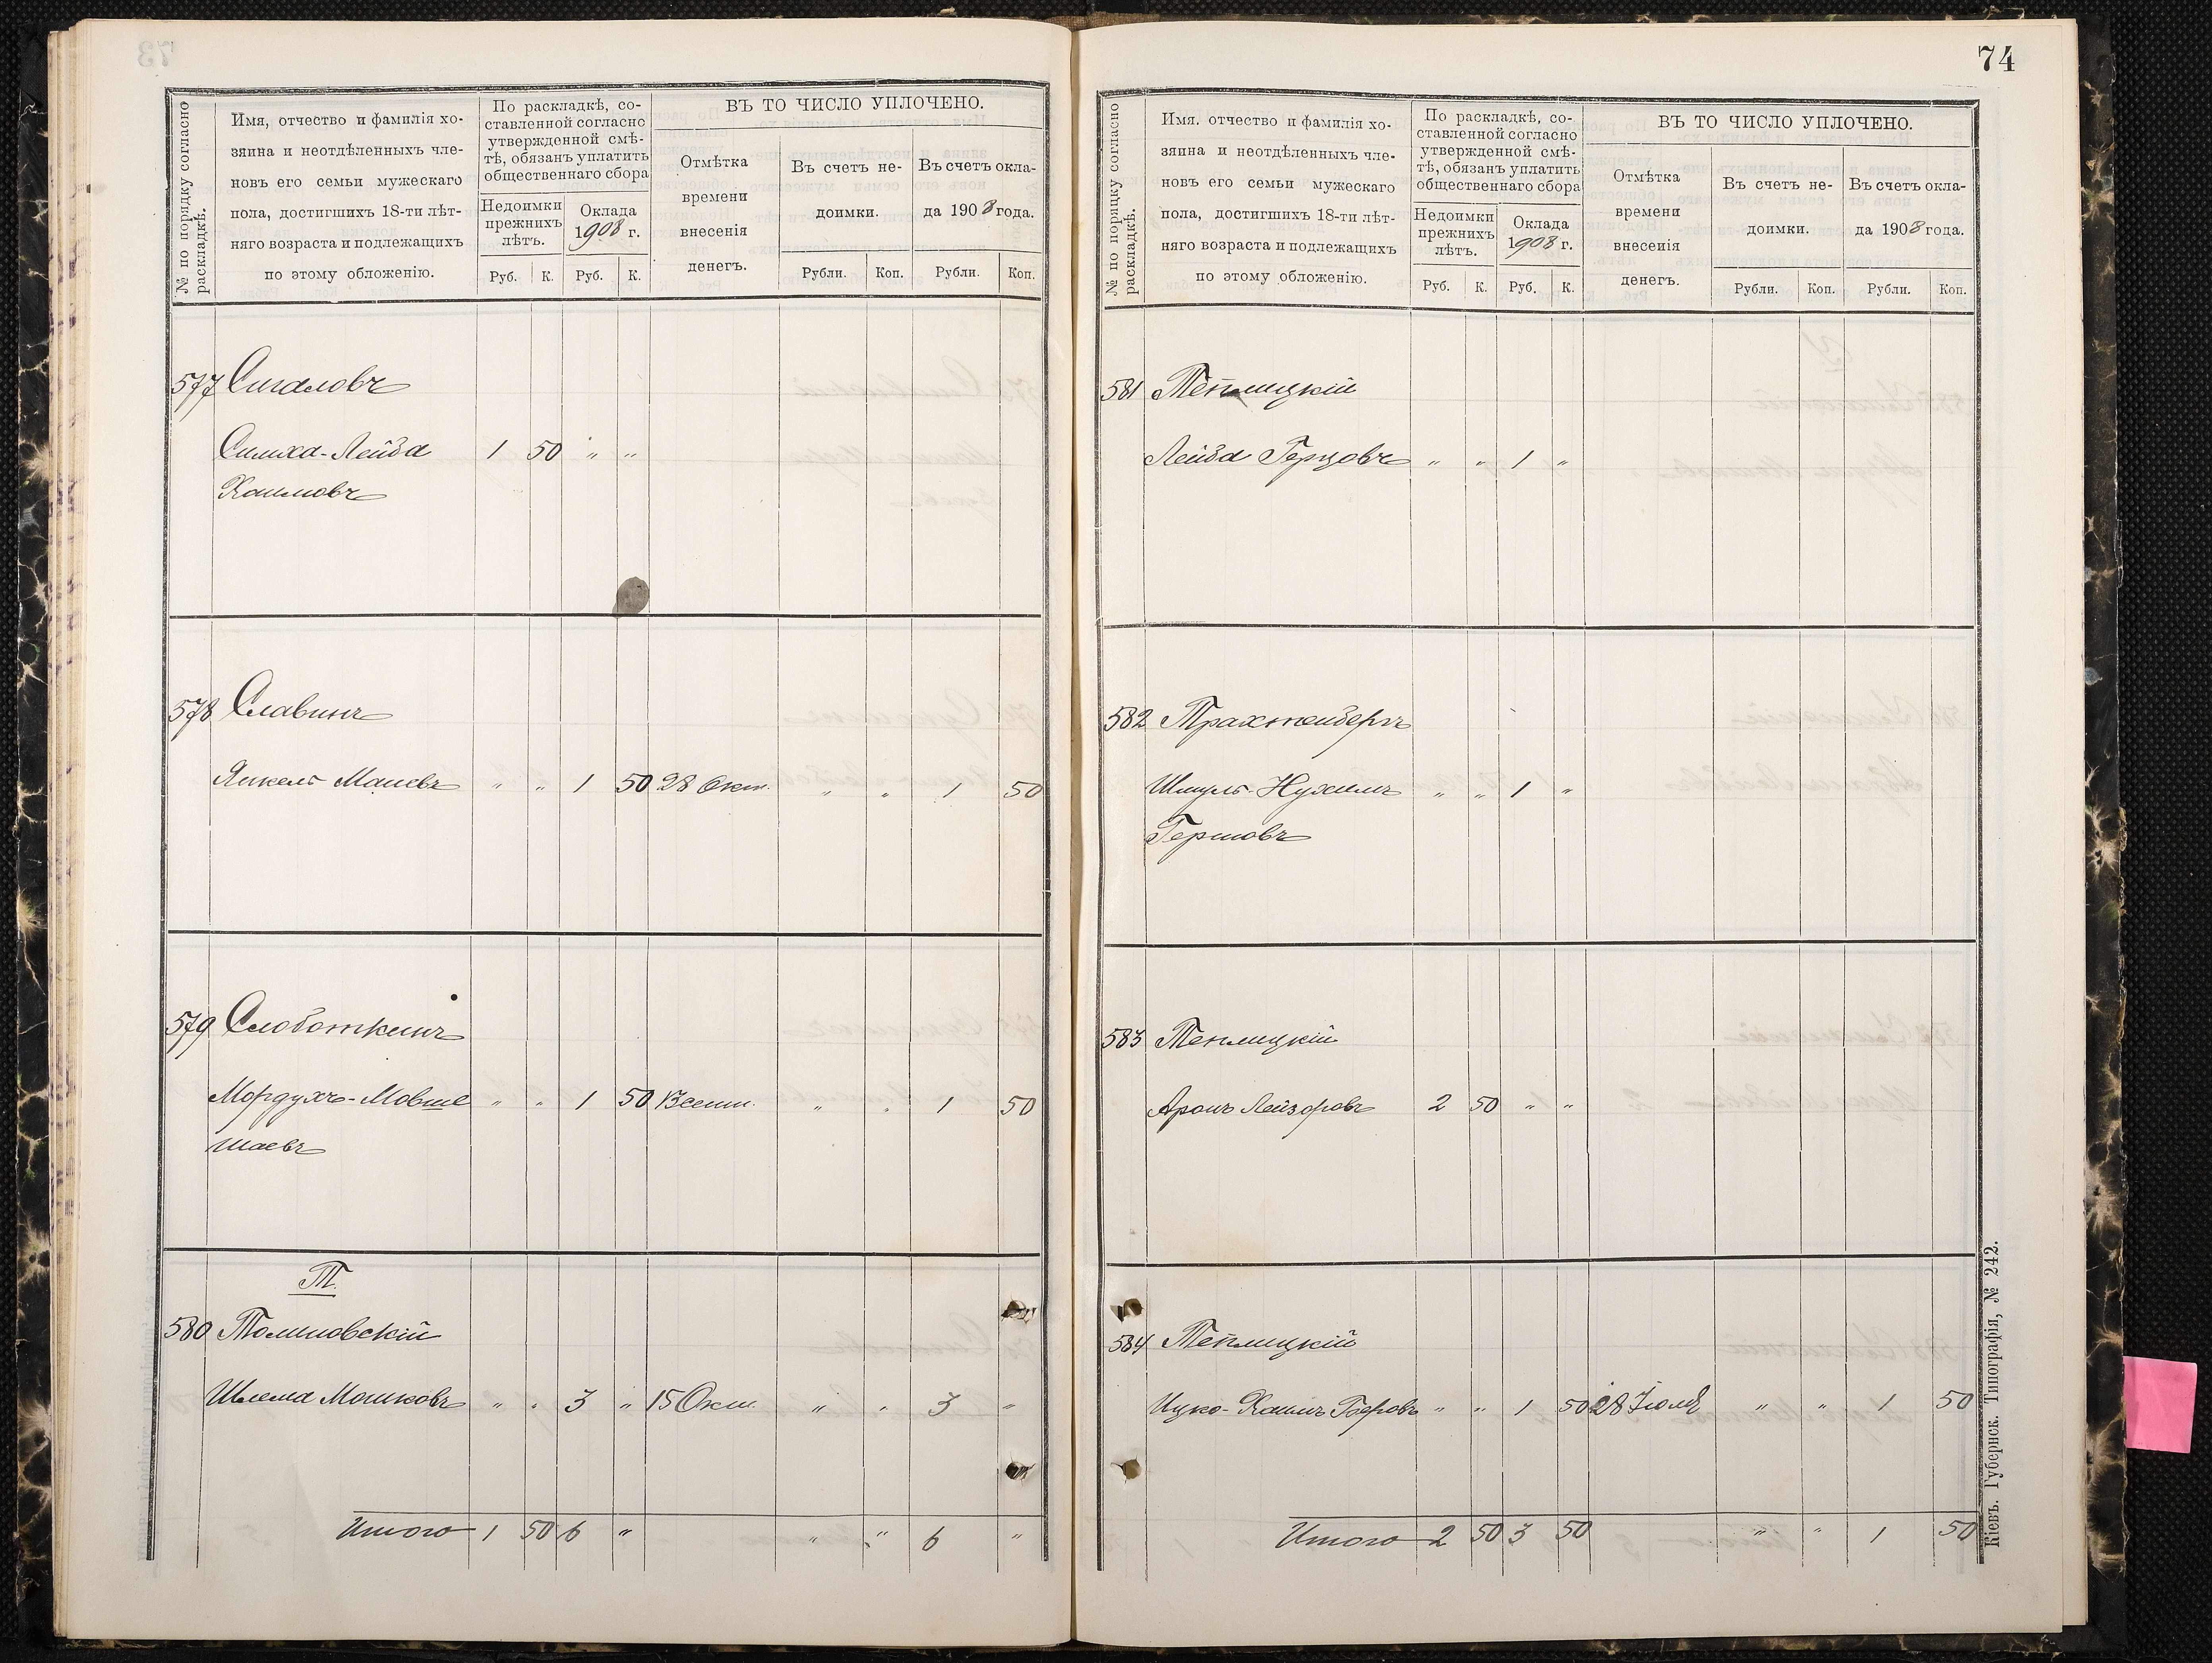 74
№ по порядку согласно раскладкѣ.
Имя, отчество и фамилія хо-
зяина и неотдѣленныхъ чле-
новъ его семьи мужескаго
пола, достигшихъ 18-ти лѣт-
няго возраста и подлежащихъ
по этому обложенію.
По раскладкѣ, со-
ставленной согласно
утвержденной смѣ-
тѣ, обязанъ уплатить
общественнаго сбора
Недоимки
прежнихъ
лѣтъ.
Оклада
1908 г.
Руб. К. Руб. К.
ВЪ ТО ЧИСЛО УПЛОЧЕНО.
Отмѣтка
времени
внесенія
денегъ.
Въ счетъ не-
доимки.
Въ счетъ окла-
да 1908 года.
Рубли. Коп. Рубли. Коп.
577 Сигаловъ
Симха-Лейба 1 50 " "
Хаимовъ
578 Славинъ
Янкель Маневъ " " 1 50 28 Окт. " " 1 50
579 Слободкинъ
Мордухъ-Мовше " " 1 50 " " 1 50
Шаевъ
Т.
580
Шлема Мошковъ " " 3 " 15 Окт. " " 3 "
Итого 1 50 6 " " " 6 "
№ по порядку согласно раскладкѣ.
Имя, отчество и фамилія хо-
зяина и неотдѣленныхъ чле-
новъ его семьи мужескаго
пола, достигшихъ 18-ти лѣт-
няго возраста и подлежащихъ
по этому обложенію.
По раскладкѣ, со-
ставленной согласно
утвержденной смѣ-
тѣ, обязанъ уплатить
общественнаго сбора
Недоимки
прежнихъ
лѣтъ.
Оклада
1908 г.
Руб. К. Руб. К.
ВЪ ТО ЧИСЛО УПЛОЧЕНО.
Отмѣтка
времени
внесенія
денегъ.
Въ счетъ не-
доимки.
Въ счетъ окла-
да 1908 года.
Рубли. Коп. Рубли. Коп.
581 Теплицкій
Лейба Герцовъ " " 1 "
582 Трахтенбергъ
Шмуль-Нухимъ " " 1 "
Гершовъ
583 Теплицкій
Аронъ Лейзоровъ 2 50 " "
584 Теплицкій
Ицко-Хаимъ Беровъ " " 1 50 28 Іюля " " 1 50
Итого 2 50 3 50 " " 1 50
Кіевъ. Губернск. Типографія, № 242.